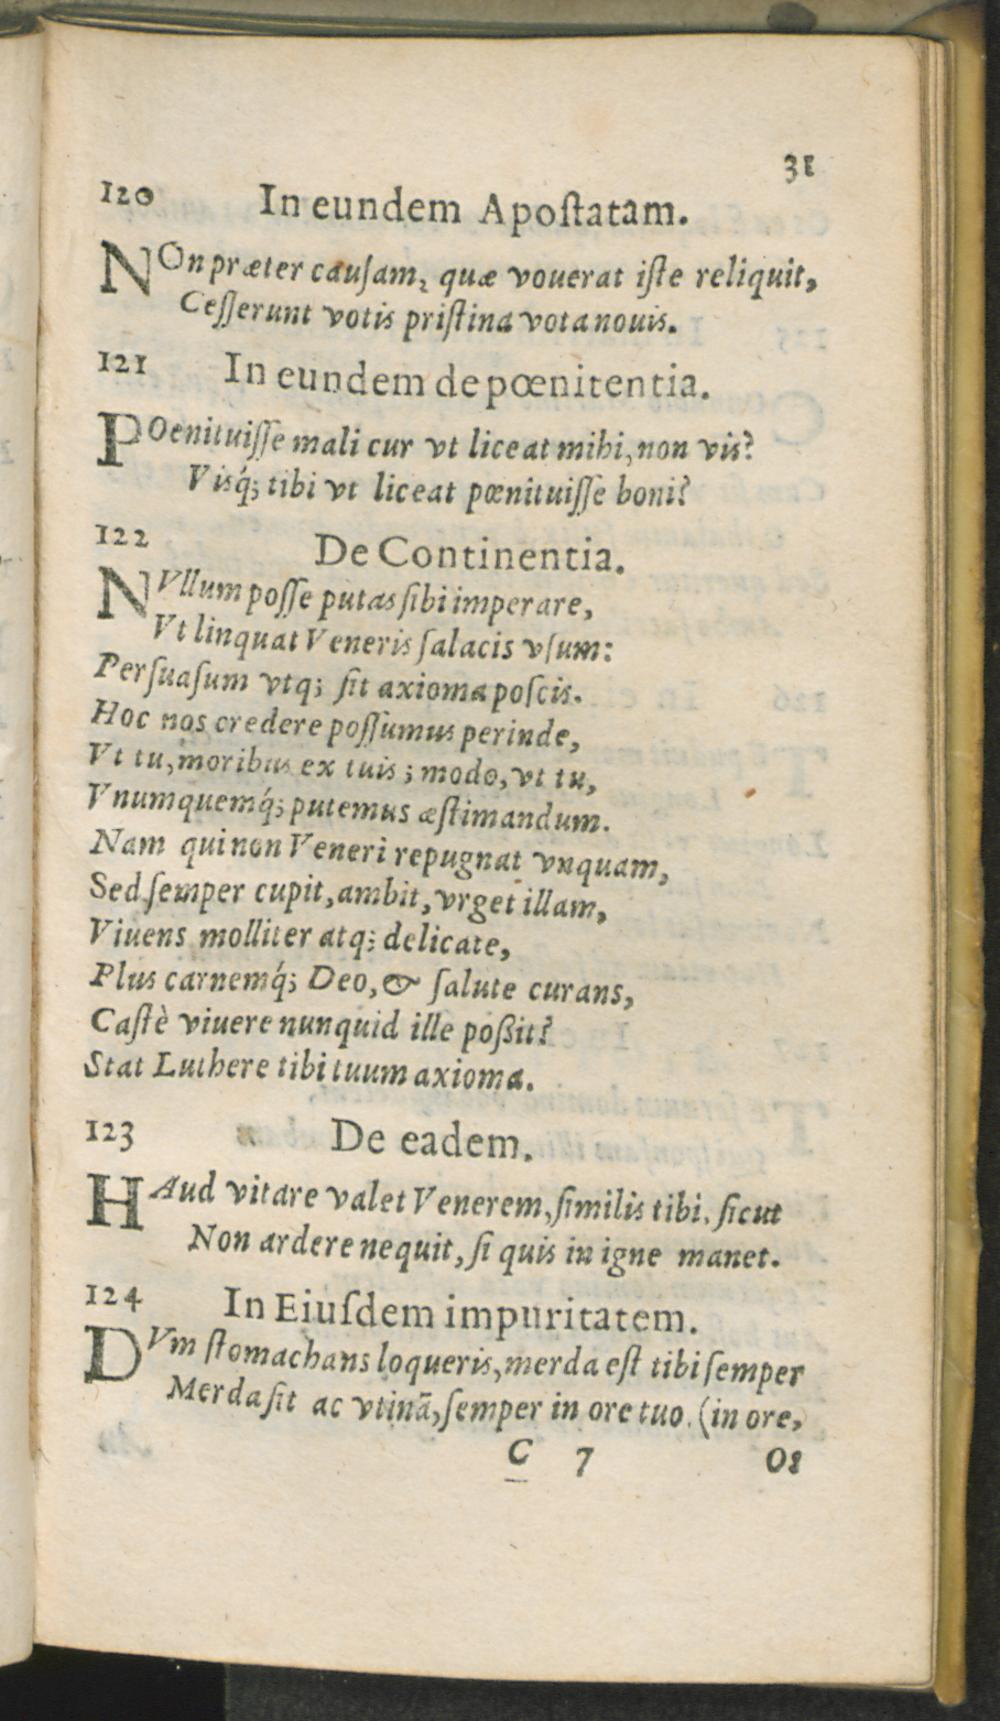 31
120 In eundem Apoſtatam.
NOn præter cauſam, quæ vouerat iſte reliquit,
Ceſſerunt votis priſtina vota nouis.
121 In eundem de pœnitentia.
POenituiſſe mali cur vt liceat mihi, non vis?
Visq́; tibi vt liceat pœnituiſſe boni?
122 De Continentia.
NVllum poſſe putas ſibi imperare,
Vt linquat Veneris ſalacis vſum:
Perſuaſum vtq; ſit axioma poſcis.
Hoc nos credere poſſumus perinde,
Vt tu, moribus ex tuis; modo, vt tu,
Vnumquemq́; putemus æſtimandum.
Nam qui non Veneri repugnat vnquam,
Sed ſemper cupit, ambit, vrget illam,
Viuens molliter atq; delicate,
Plus carnemq́; Deo, & ſalute curans,
Caſtè viuere nunquid ille poßit?
Stat Luthere tibi tuum axioma.
123 De eadem.
HAud vitare valet Venerem, ſimilis tibi, ſicut
Non ardere nequit, ſi quis in igne manet.
124 In Eiuſdem impuritatem.
DVm ſtomachans loqueris, merda eſt tibi ſemper
Merda ſit ac vtinã, ſemper in ore tuo. (in ore,
C 7 Os